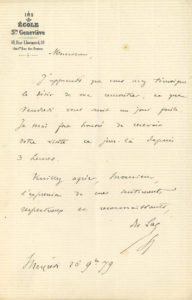 ÉCOLE
Ste Geneviève
18, Rue Lhomond, 18
Monsieur,
J'apprends que vous avez témoigné
le désir de me rencontrer, et que
Vendredi vous serait un jour
Je serai fort honoré de recevoir
votre visite ce jour là depuis
3 heures.
Veuillez agréer, Monsieur,
l'expression de mes sentiments
respectueux et reconnaissants,
du Lac
Mercredi 26 9bre 79